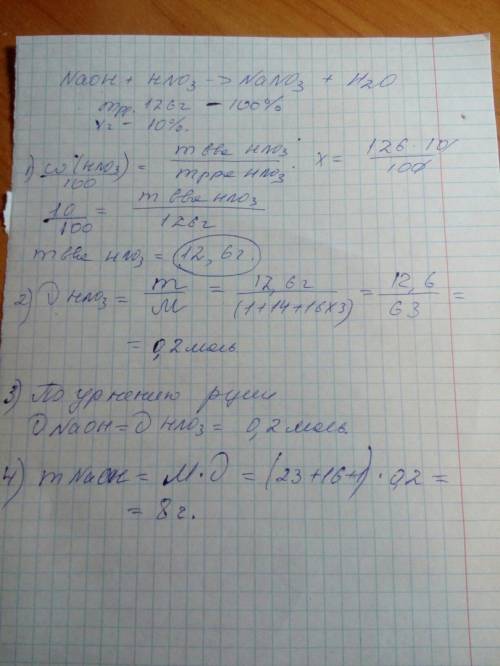 NaOH + HNO3 -> NaNO3 + H2O
mрр. 126г - 100%
xг - 10%.
1) ω(HNO3)/100 = m вва HNO3 / m рра HNO3 ; x = 126 · 10 / 100
10/100 = m вва HNO3 / 126г
m вва HNO3 = 12,6г.
2) ν HNO3 = m/M = 12,6г / (1+14+16×3) = 12,6/63 =
= 0,2 моль
3) По ур-нению р-ции
ν NaOH = ν HNO3 = 0,2 моль
4) m NaOH = M · ν = (23+16+1) · 0,2 =
= 8 г.